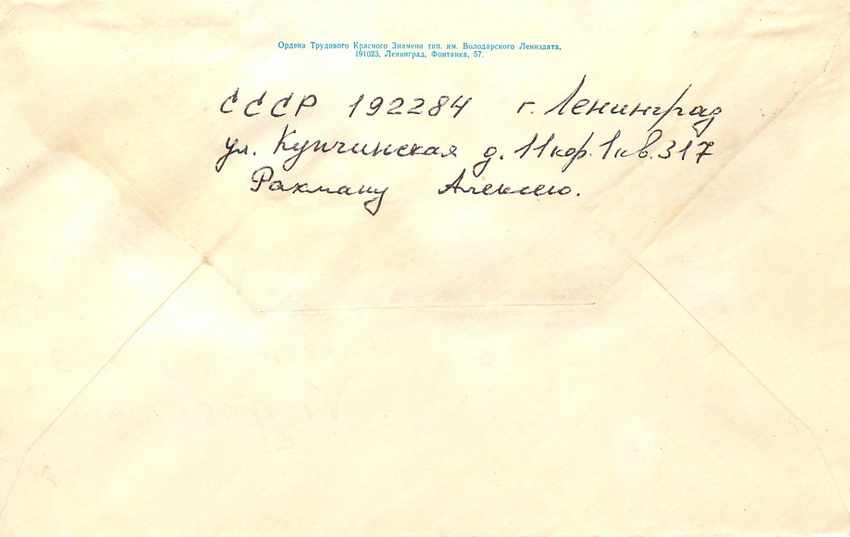 Ордена Трудового Красного Знамени тип. им. Володарского Лениздата,
191023, Ленинград, Фонтанка, 57.
СССР 192284 г. Ленинград
ул. Купчинская д. 11 кор. 1 кв. 317
Рахману Алексею.